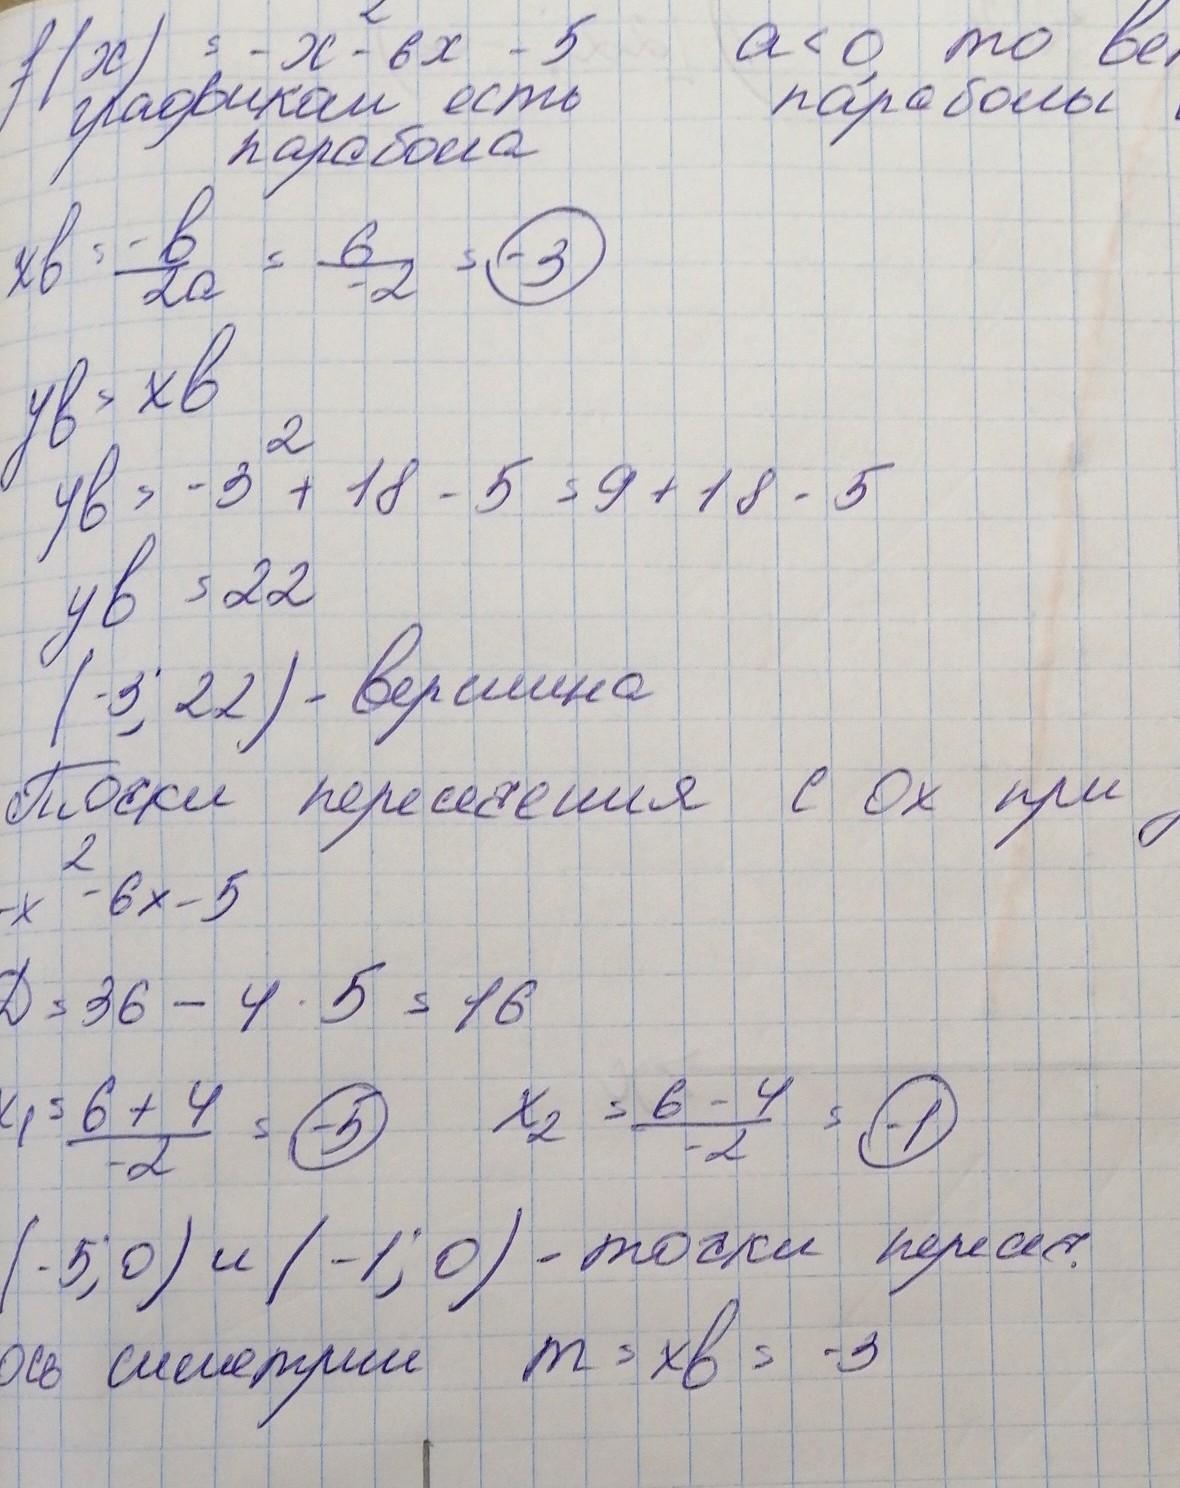 f(x) = -x²-6x - 5 a<0, то ве
графиком есть параболы
парабола
xв = -b/2a = 6/-2 = -3
yв = xв
yв = -3² + 18 - 5 = 9 + 18 - 5
yв = 22
(-3; 22) - вершина
Точки пересечения с Ox при y
-x² - 6x - 5
D = 36 - 4 · 5 = 16
x₁ = 6 + 4/-2 = -5 x₂ = 6 - 4/-2 = -1
(-5; 0) и (-1; 0) - точки пересеч.
ось симетрии m = xв = -3